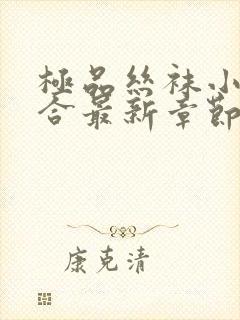 極品絲袜小
合最新章節
康克清